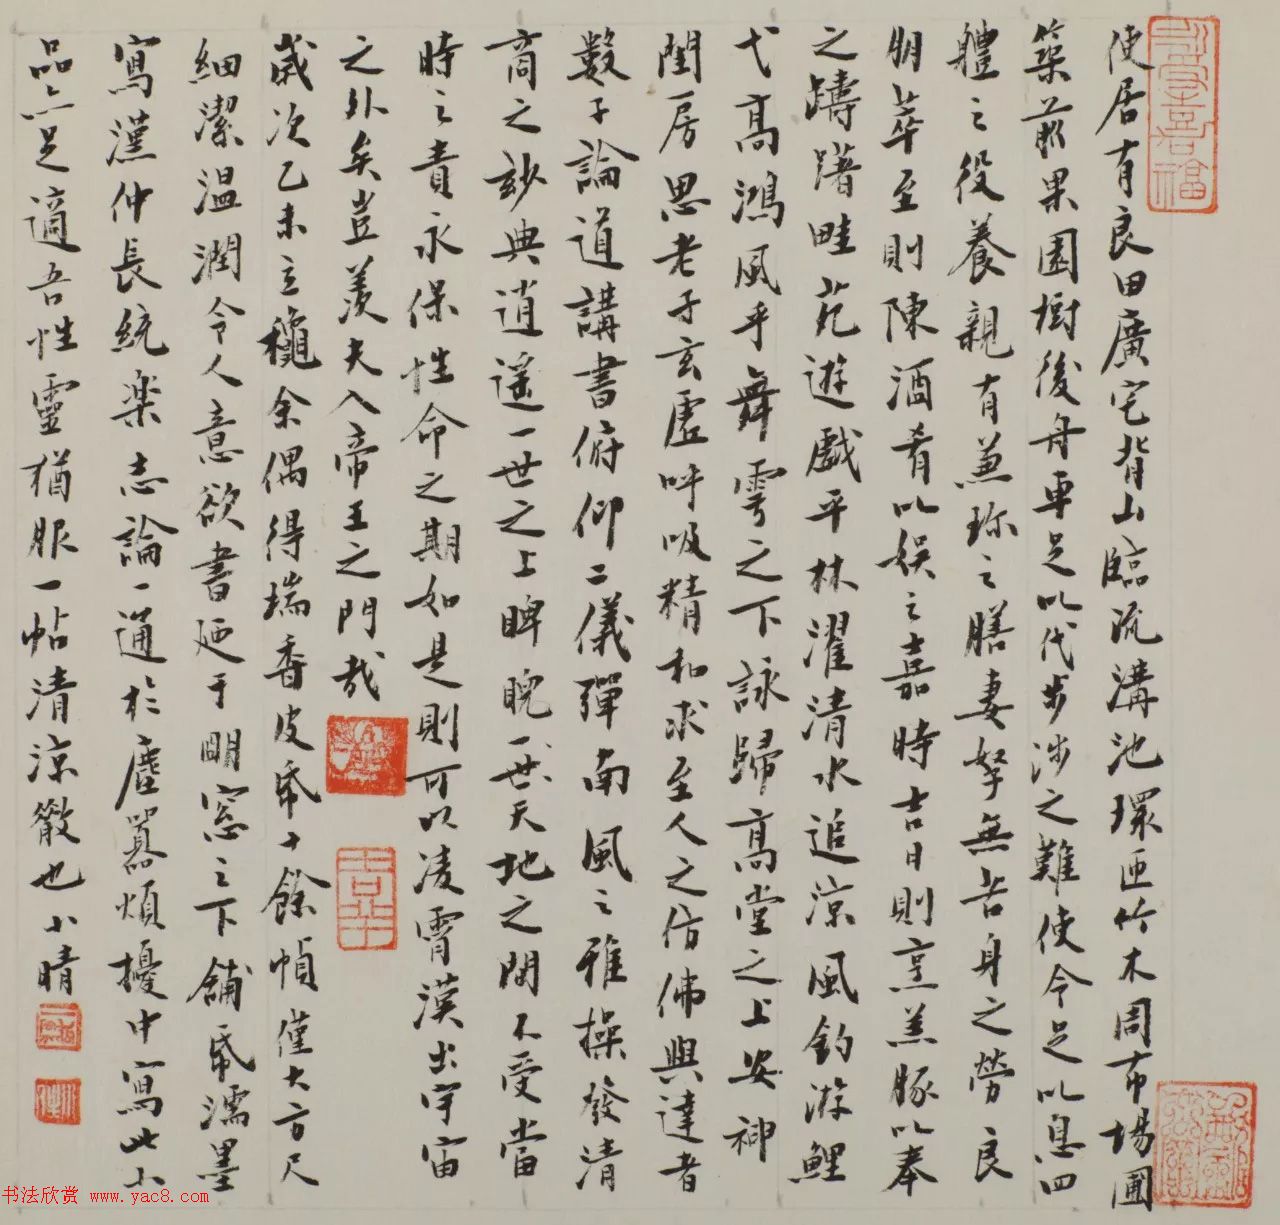 使居有良田廣宅背山臨流溝池環匝竹木周布場圃
築前果園樹後舟車足以代步涉之難使令足以息四
體之役養親有兼珍之膳妻孥無苦身之勞良
朋萃至則陳酒肴以娛之嘉時吉日則烹羔豚以奉
之躊躇畦苑遊戲平林濯清水追涼風釣游鯉
弋高鴻風乎舞雩之下詠歸高堂之上安神
閨房思老子玄虛呼吸精和求至人之仿佛與達者
數子論道講書俯仰二儀彈南風之雅操發清
商之妙典逍遙一世之上睥睨一世天地之間不受當
時之責永保性命之期如是則可以凌霄漢出宇宙
之外矣豈羨夫入帝王之門哉
歲次乙未立龝余偶得瑞香皮帋十餘幀僅大方尺
細潔溫潤令人意欲書廼于朙窓之下鋪帋濡墨
寫漢仲長統樂志論一通於塵囂煩擾中寫此小
品亦足適吾性靈猶服一帖清涼散也小晴
吉羊
书法欣赏 www.yac8.com